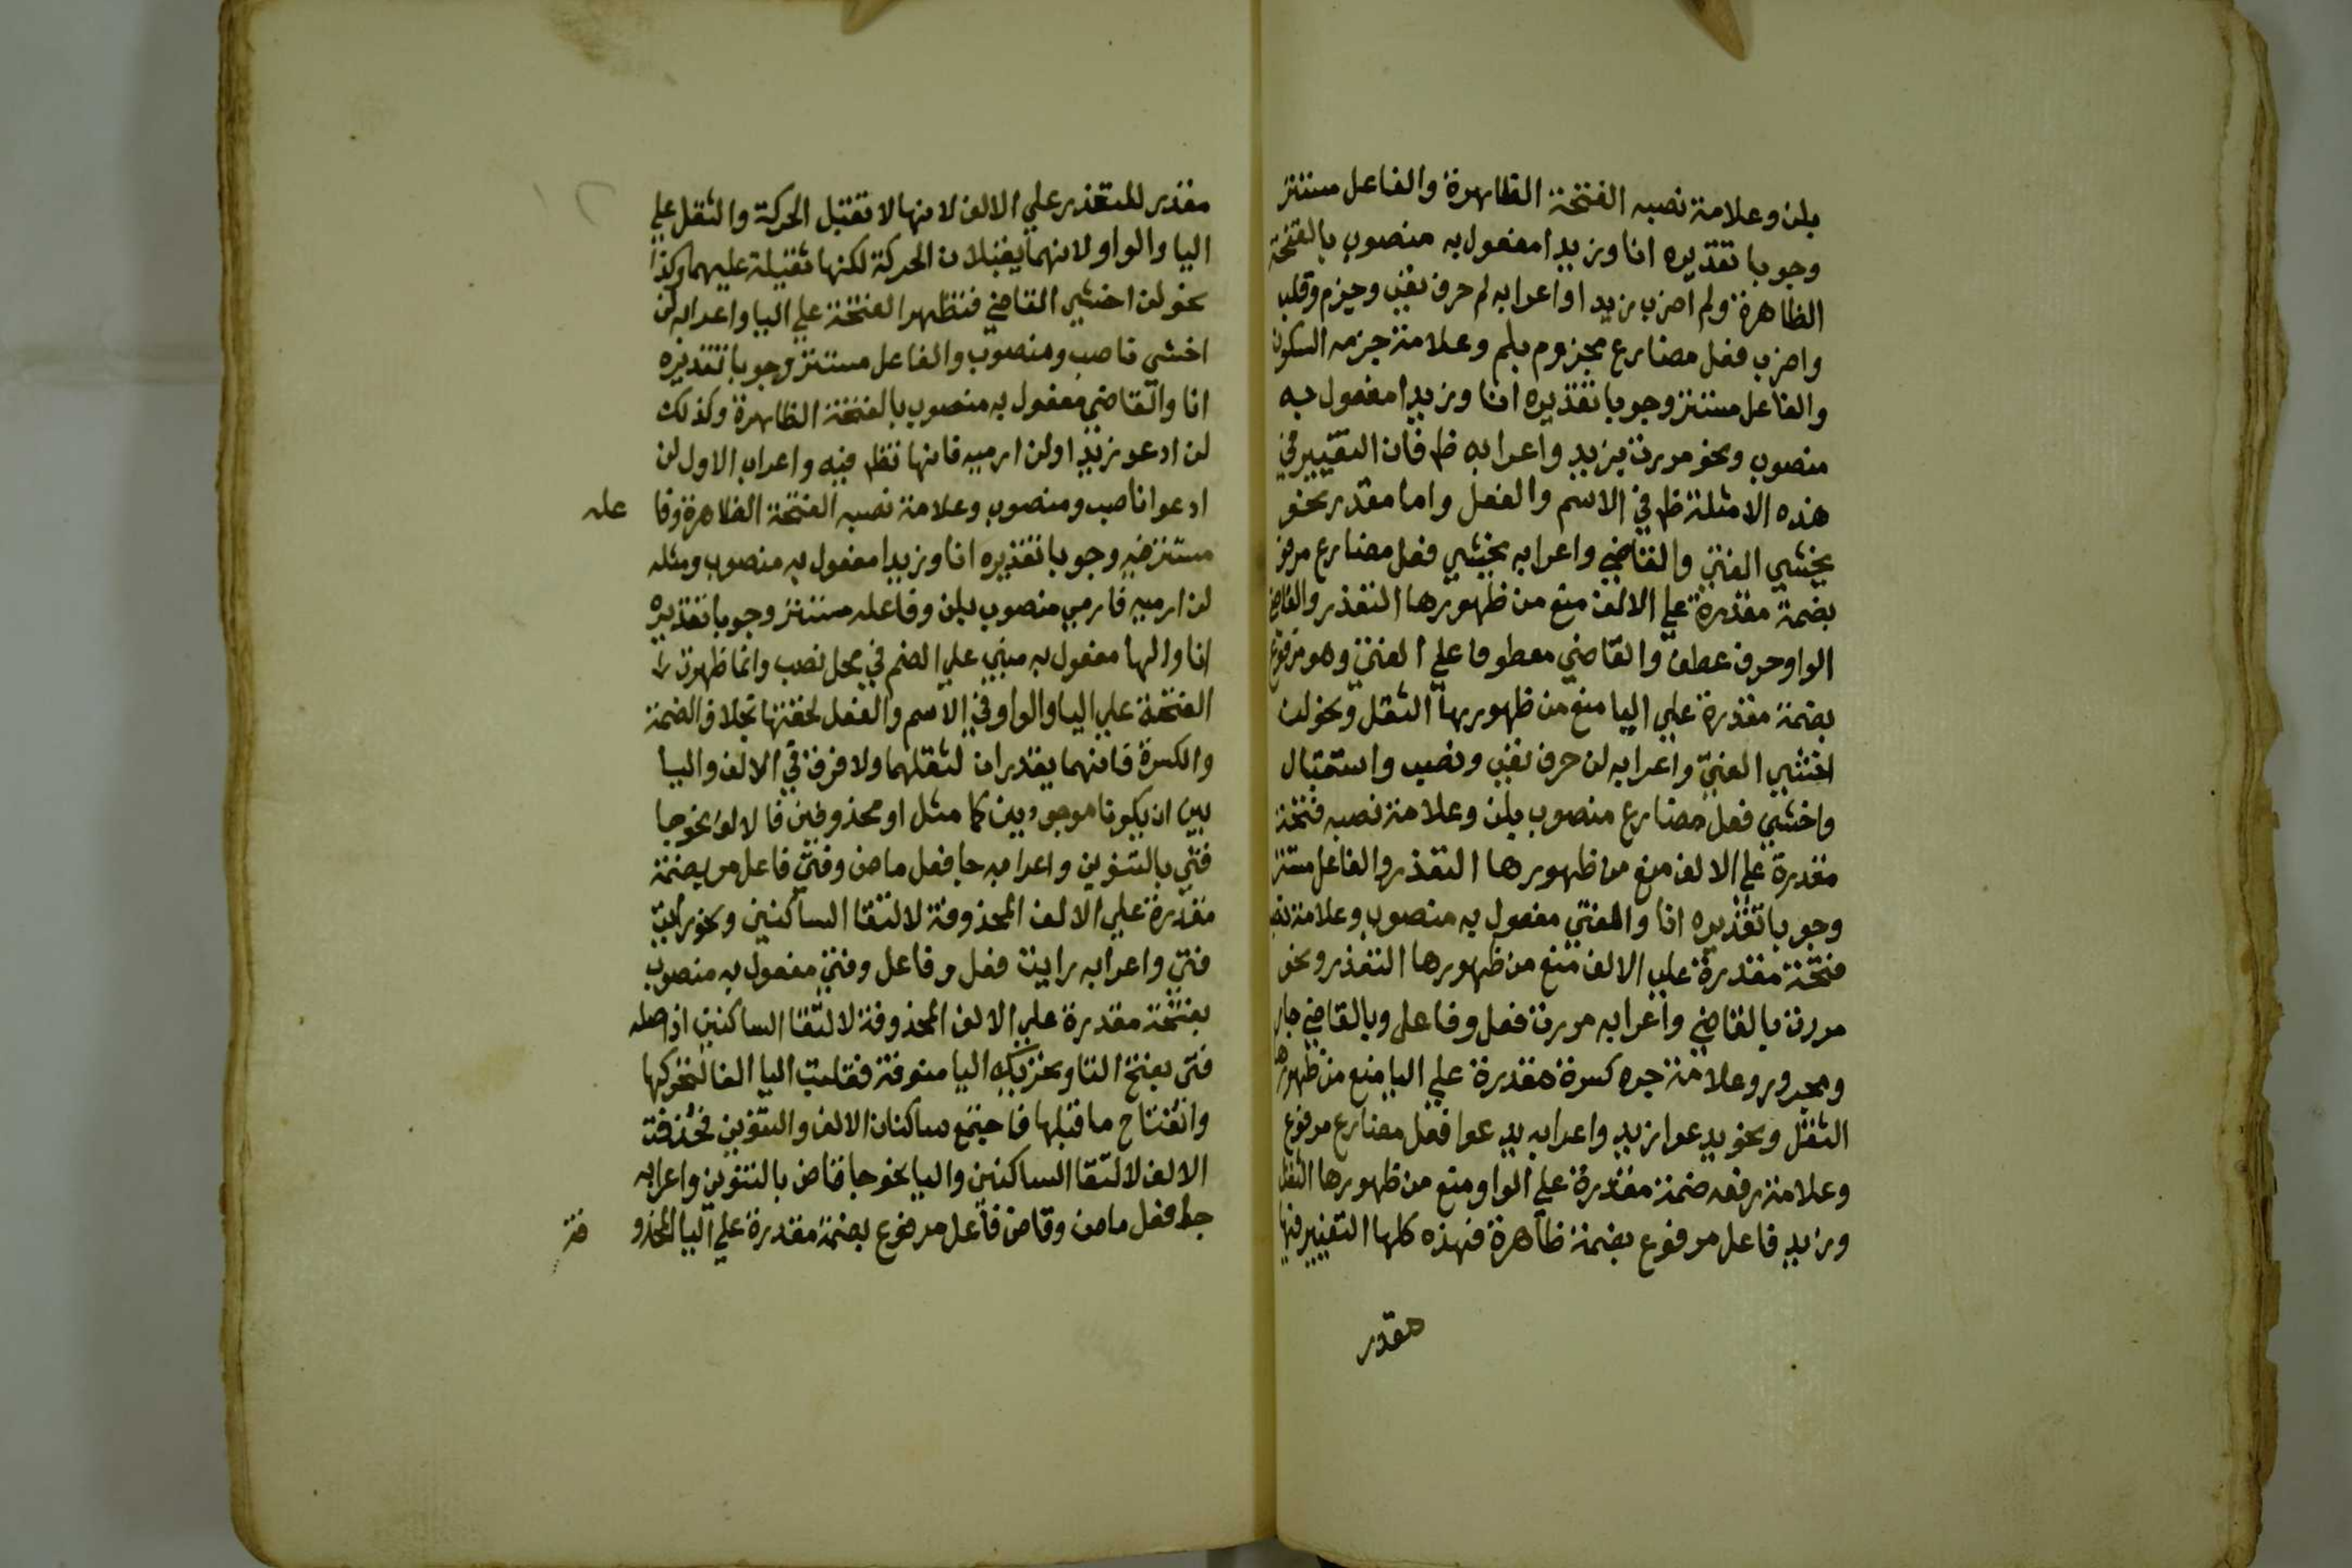 بلن وعلامة نصبه الفتحة الظاهرة والفاعل مستتر
وجوبا تقديره انا وزيدا مفعول به منصوب بالفتحة
الظاهرة ولم اضرب زيدا واعرابه لم حرف نفي وجزم وقلب
واضرب فعل مضارع مجزوم بلم وعلامة جزمه السكون
والفاعل مستتر وجوبا تقديره انا وزيدا مفعول به
منصوب ونحو مررت بزيد واعرابه ظ فان التغيير في
هذه الامثلة ظ في الاسم والفعل واما مقدر نحو
يخشي الفتي والقاضي واعرابه يخشي فعل مضارع مرفو
بضمة مقدرة علي الالف منع من ظهورها التعذر والقاضي
الواو حرف عطف والقاضي معطوفا علي الفتي وهو مرفوع
بضمة مقدرة علي اليا منع من ظهورها الثقل ونحو لن
اخشي الفتي واعرابه لن حرف نفي ونصب واستقبال
واخشي فعل مضارع منصوب بلن وعلامة نصبه فتحة
مقدرة علي الالف منع من ظهورها التعذر والفاعل مستتر
وجوبا تقديره انا والفتي مفعول به منصوب وعلامة نصبه
فتحة مقدرة علي الالف منع من ظهورها التعذر ونحو
مررت بالقاضي واعرابه مررت فعل وفاعل وبالقاضي جار
ومجرور وعلامة جره كسرة مقدرة علي اليا منع من ظهورها
الثقل ونحو يدعوا زيد واعرابه يدعوا فعل مضارع مرفوع
وعلامة رفعه ضمة مقدرة علي الواو منع من ظهورها الثقل
وزيد فاعل مرفوع بضمة ظاهرة فهذه كلها التغيير فيها
مقدر
مقدر للتعذر علي الالف لانها لا تقبل الحركة والثقل علي
اليا والواو لانهما يقبلان الحركة لكنها ثقيلة عليهما وكذا
نحو لن اخشي القاضي فتظهر الفتحة علي اليا واعرابه لن
اخشي ناصب ومنصوب والفاعل مستتر وجوبا تقديره
انا والقاضي مفعول به منصوب بالفتحة الظاهرة وكذلك
لن ادعو زيدا ولن ارميه فانها تظ فيه واعراب الاول لن
ادعوا ناصب ومنصوب وعلامة نصبه الفتحة الظاهرة وفا عله
مستتر فيه وجوبا تقديره انا وزيدا مفعول به منصوب ومثله
لن ارميه فارمي منصوب بلن وفاعله مستتر وجوبا تقديره
انا والها مفعول به مبني علي الضم في محل نصب وانما ظهرت
الفتحة علي اليا والواو في الاسم والفعل لخفتها بخلاف الضمة
والكسرة فانهما يقدران لثقلهما ولا فرق في الالف واليا
بين ان يكونا موجودين كما مثل او محذوفين فالالف نحو جا
فتي بالتنوين واعرابه جا فعل ماض وفتي فاعل مر بضمة
مقدرة علي الالف المحذوفة لالتقا الساكنين ونحو رايت
فتي واعرابه رايت فعل وفاعل وفتي مفعول به منصوب
بفتحة مقدرة علي الالف المحذوفة لالتقا الساكنين اذ اصله
فتي بفتح التا وتحريك اليا منونة فقلبت اليا الفا لتحركها
وانفتاح ما قبلها فاجتمع ساكنان الالف والتنوين فحذفت
الالف لالتقا الساكنين واليا نحو جا قاض بالتنوين واعرابه
جا فعل ماض وقاض فاعل مرفوع بضمة مقدرة علي اليا المحذو فة